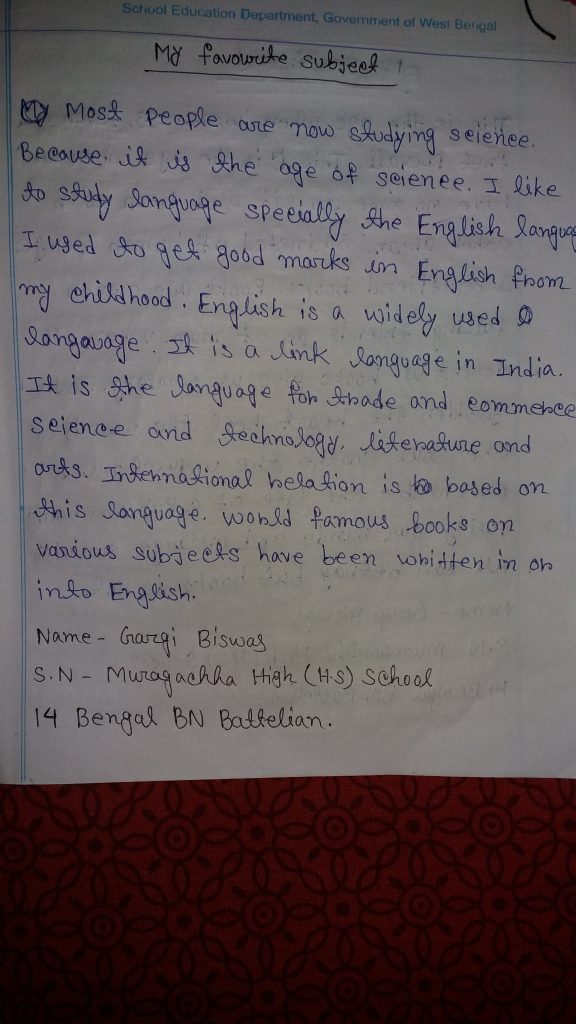 School Education Department, Government of West Bengal
My favourite subject
Most people are now studying science.
Because. it is the age of science. I like
to study language specially the English langua
I used to get good marks in English from
my childhood. English is a widely used
langauage. It is a link language in India.
It is the language for trade and commerce
science and technology, literature and
arts. International relation is based on
this language. world famous books on
various subjects have been written in or
into English.
Name - Gargi Biswas
S.N - Muragachha High (H.S) School
14 Bengal BN Battelian.